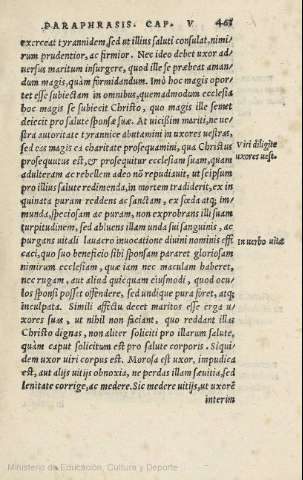 PARAPHRASIS. CAP. V 461
exerceat tyrannidem, sed ut illius saluti consulat, nimi
rum prudentior, ac firmior. Nec ideo debet uxor ad/
uersus maritum insurgere, quod ille se præbeat aman/
dum magis, quàm firmidandum. Imò hoc magis opor/
tet esse subiectam in omnibus, quemadmodum ecclesia
hoc magis se subiecit Christo, quo magis ille semet
deiecit pro salute sponsæ suæ. At uicissim mariti, ne ue/
stra autoritate tyrannice abutamini in uxores uestras,
sed eas magis ea charitate prosequamini, qua Christus
prosequutus est, & prosequitur ecclesiam suam, quam
adulteram ac rebellem adeo nō repudiauit, ut seipsum
pro illius salute redimenda, in mortem tradiderit, ex in
quinata puram reddens ac sanctam, ex fœda atq; im/
munda, speciosam ac puram, non exprobrans illi suam
turpitudinem, sed abluens illam unda sui sanguinis, ac
purgans uitali lauacro inuocatione diuini nominis effi
caci, quo suo beneficio sibi sponsam pararet gloriosam
nimirum ecclesiam, quæ iam nec maculam haberet,
nec rugam, aut aliud quicquam eiusmodi, quod ocu/
los sponsi posset offendere, sed undique pura foret, atq;
inculpata. Simili affectu decet maritos esse erga u/
xores suas, ut nihil non faciant, quo reddant illas
Christo dignas, non aliter soliciti pro illarum salute,
quàm caput solicitum est pro salute corporis. Siqui/
dem uxor uiri corpus est. Morosa est uxor, impudica
est, aut alijs uitijs obnoxia, ne perdas illam sæuitia, sed
lenitate corrige, ac medere. Sic medere uitijs, ut uxorē
interim
Viri diligite
uxores uest.
In uerbo uitæ
Ministerio de Educación, Cultura y Deporte